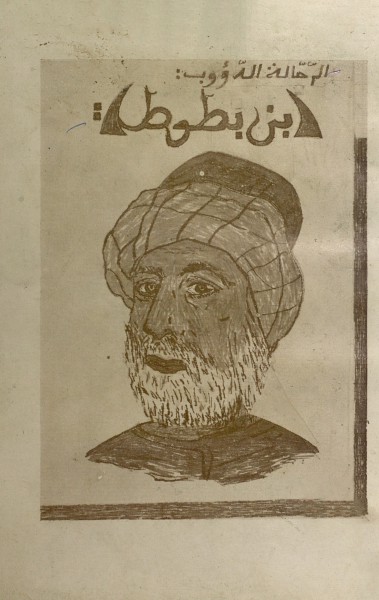 الرّحّالة الدّؤوب:
ابن بطوطة